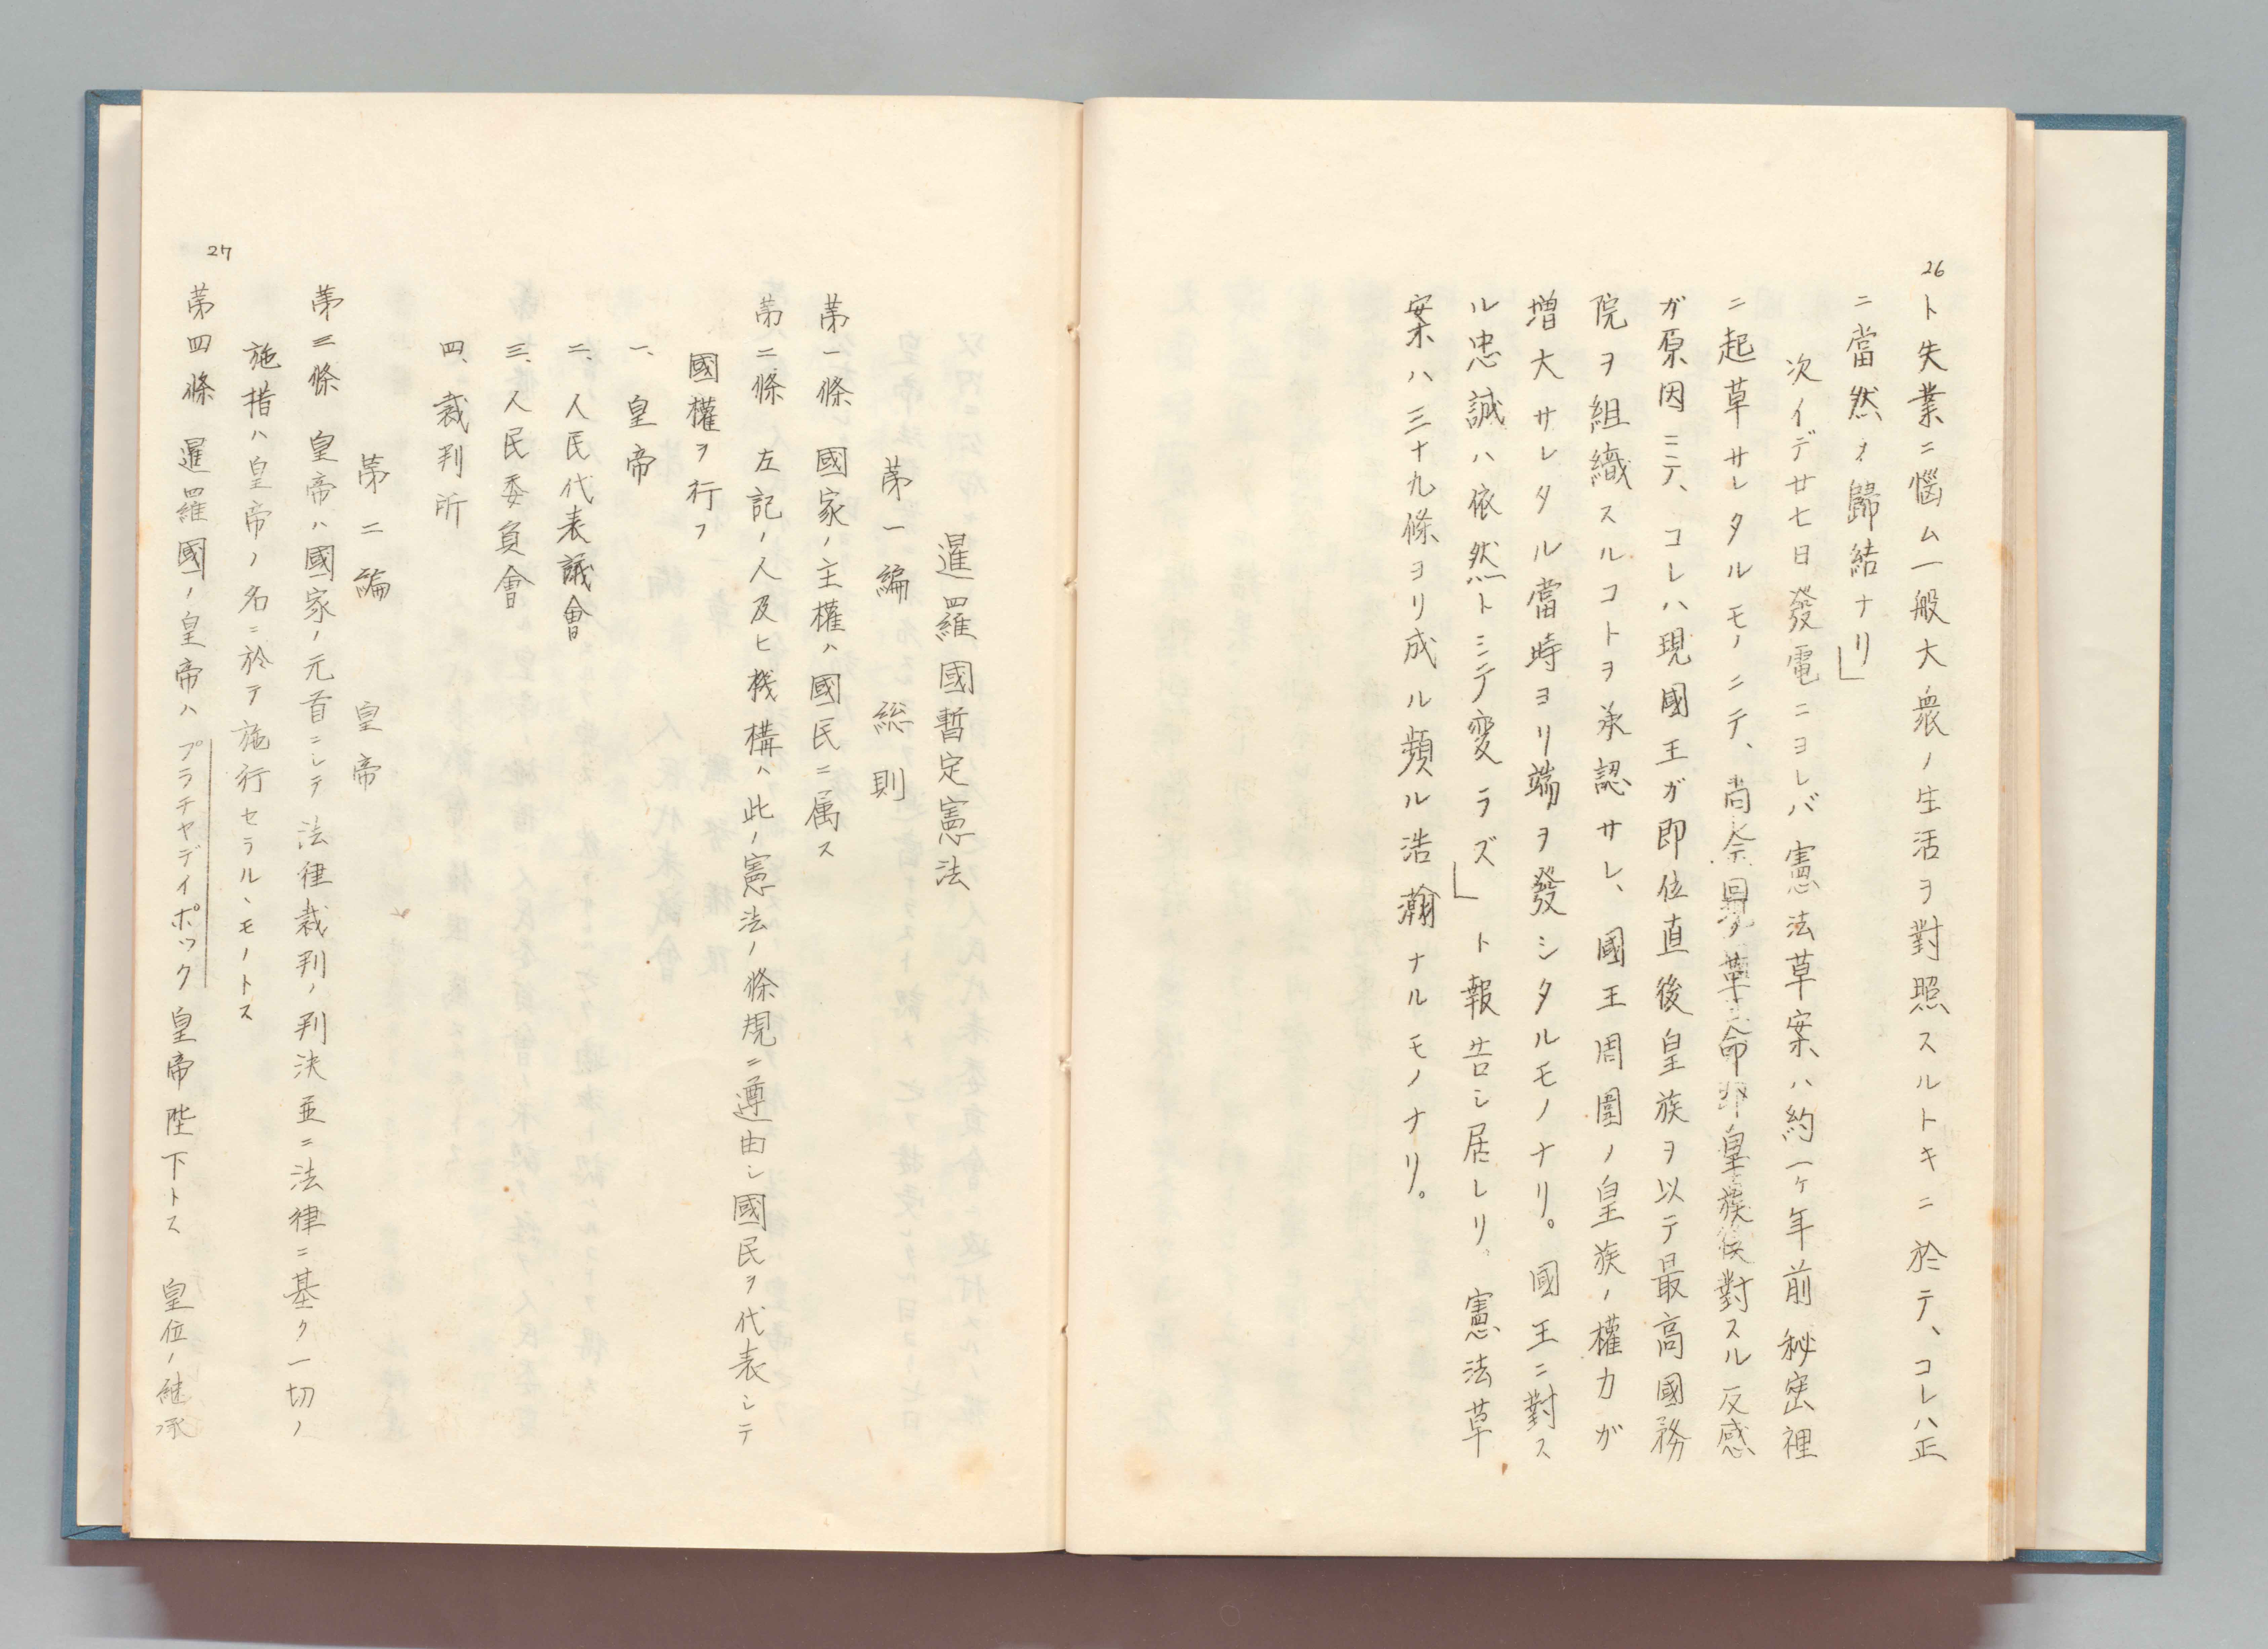 26
ト失業ニ惱ム一般大衆ノ生活ヲ對照スルトキニ於テ、コレハ正
ニ當然ノ歸結ナリ」
次イデ廿七日發電ニヨレバ憲法草案ハ約一ケ年前秘密裡
ニ起草サレタルモノニテ、尚今回ノ革命ハ皇族ニ對スル反感
ガ原因ニテ、コレハ現國王ガ即位直後皇族ヲ以テ最高國務
院ヲ組織スルコトヲ承認サレ、國王周圍ノ皇族ノ權力ガ
増大サレタル當時ヨリ端ヲ發シタルモノナリ。國王ニ對ス
ル忠誠ハ依然トシテ変ラズ」ト報告シ居レリ、憲法草
案ハ三十九條ヨリ成ル頻ル浩瀚ナルモノナリ。
暹羅國暫定憲法
第一編 総則
第一條 國家ノ主權ハ國民ニ属ス
第二條 左記ノ人及ヒ機構ハ此ノ憲法ノ條規ニ遵由シ國民ヲ代表シテ
國權ヲ行フ
一、皇帝
二、人民代表議會
三、人民委負會
四、裁判所
第二編 皇帝
第三條 皇帝ハ國家ノ元首ニシテ法律裁判ノ判決並ニ法律ニ基ク一切ノ
施措ハ皇帝ノ名ニ於テ施行セラル、モノトス
27
第四條 暹羅國ノ皇帝ハプラチヤデイポック皇帝陛下トス 皇位ノ継承